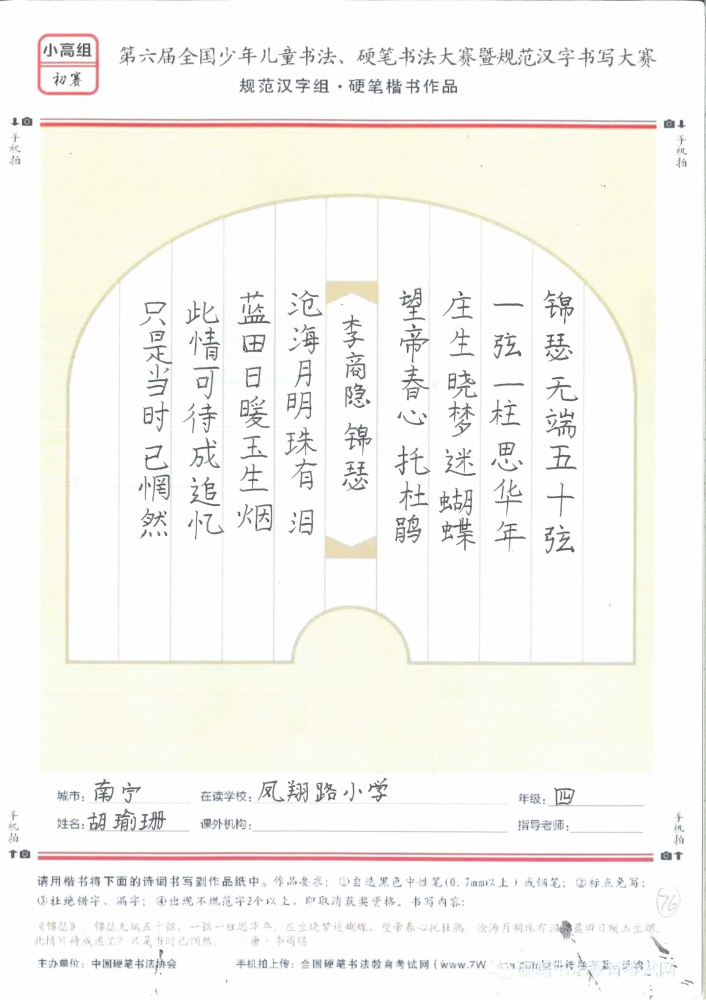 小高组
初赛
第六届全国少年儿童书法、硬笔书法大赛暨规范汉字书写大赛
规范汉字组·硬笔楷书作品
手机拍
手机拍
锦瑟无端五十弦
一弦一柱思华年
庄生晓梦迷蝴蝶
望帝春心托杜鹃
李商隐锦瑟
沧海月明珠有泪
蓝田日暖玉生烟
此情可待成追忆
只是当时已惘然
城市:南宁
在读学校:凤翔路小学
年级:四
姓名:胡瑜珊
课外机构:
指导老师:
手机拍
手机拍
请用楷书将下面的诗词书写到作品纸中。作品要求:①自选黑色中性笔(0.7mm以上)或钢笔;②标点免写;
③杜绝错字、漏字;④出现不规范字2个以上,即取消获奖资格。书写内容:
76
《锦瑟》:锦瑟无端五十弦,一弦一柱思华年。庄生晓梦迷蝴蝶,望帝春心托杜鹃。沧海月明珠有泪,蓝田日暖玉生烟。
此情可待成追忆?只是当时已惘然。——唐·李商隐
主办单位:中国硬笔书法协会
手机拍上传:全国硬笔书法教育考试网(www.7W